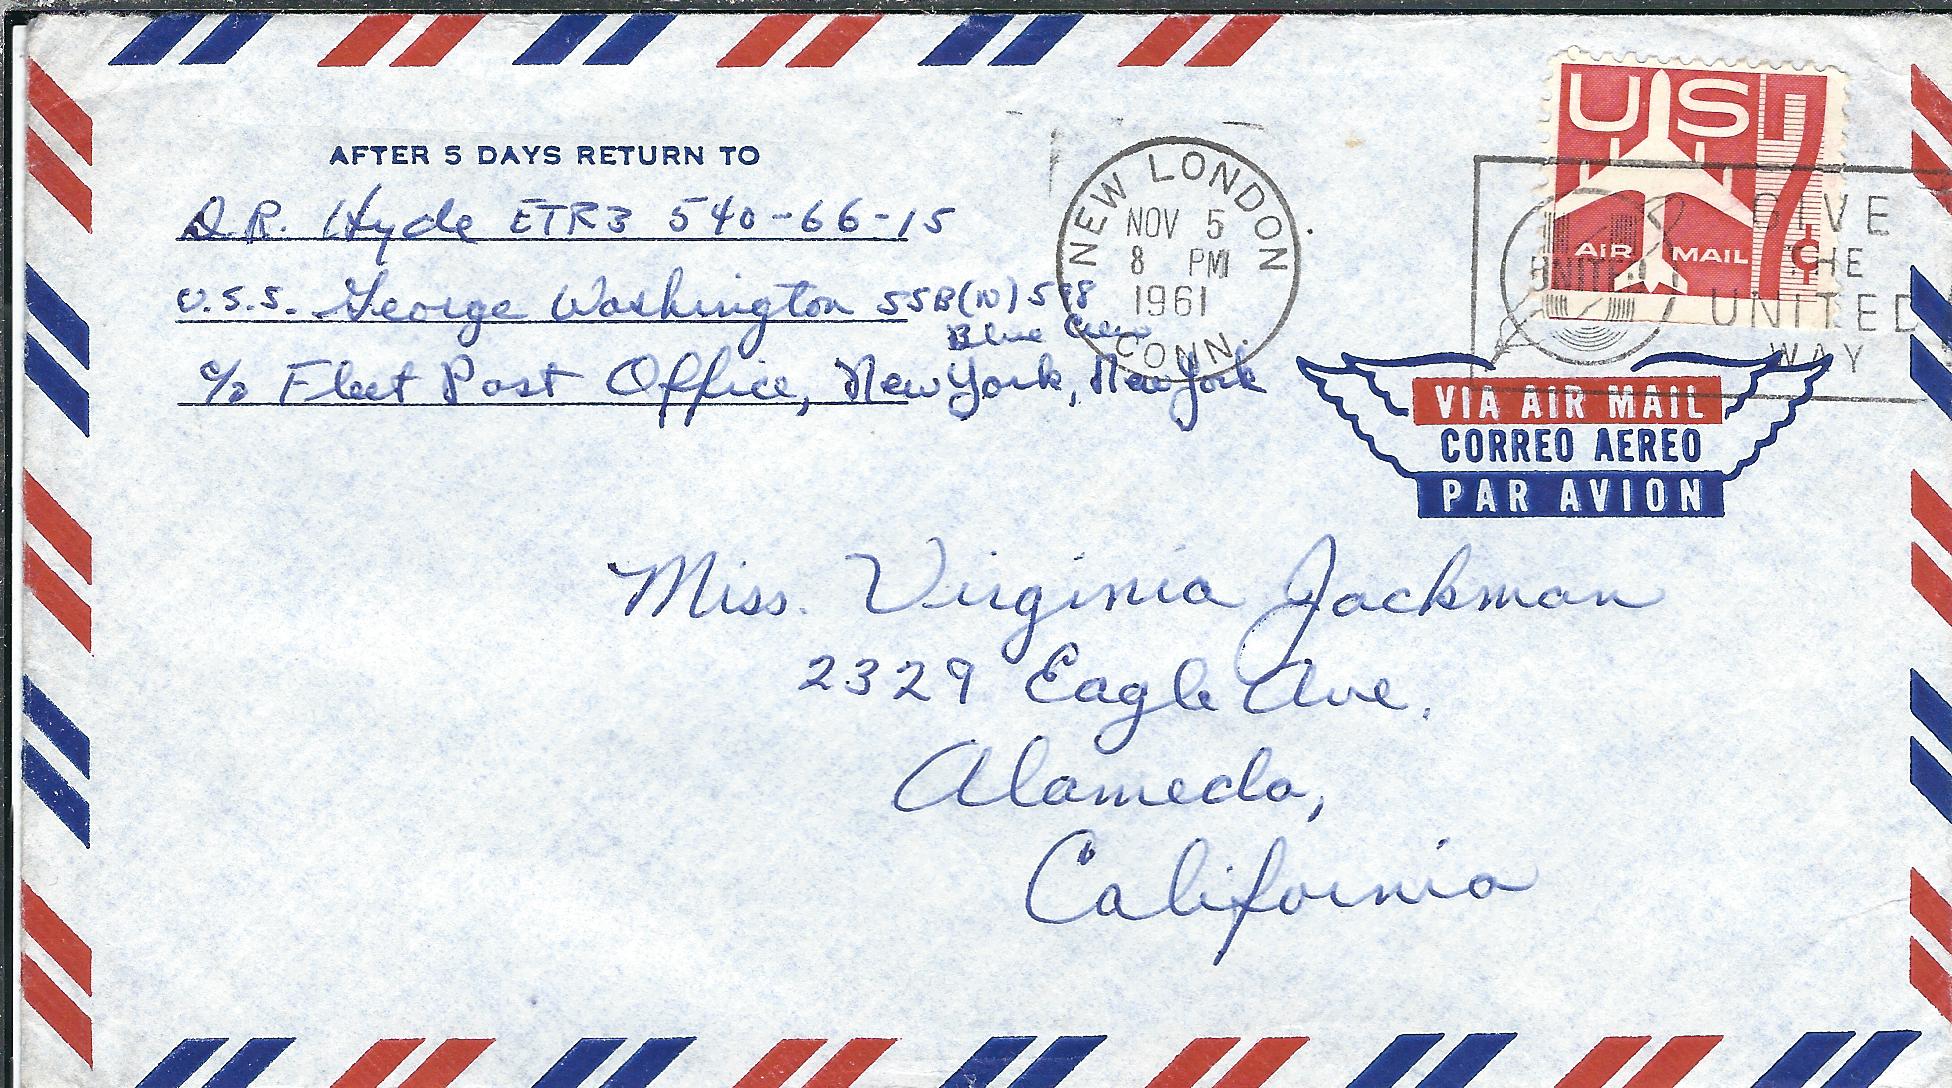 AFTER 5 DAYS RETURN TO
D.R. Hyde ETR3 540-66-15
U.S.S. George Washington SSB(N) 598
Blue Crew
c/o Fleet Post Office, New York, New York
NEW LONDON
NOV 5
8 PM
1961
CONN.
US 7¢
AIR MAIL
GIVE
THE
UNITED
WAY
VIA AIR MAIL
CORREO AEREO
PAR AVION
Miss. Virginia Jackman
2329 Eagle Ave.
Alameda,
California